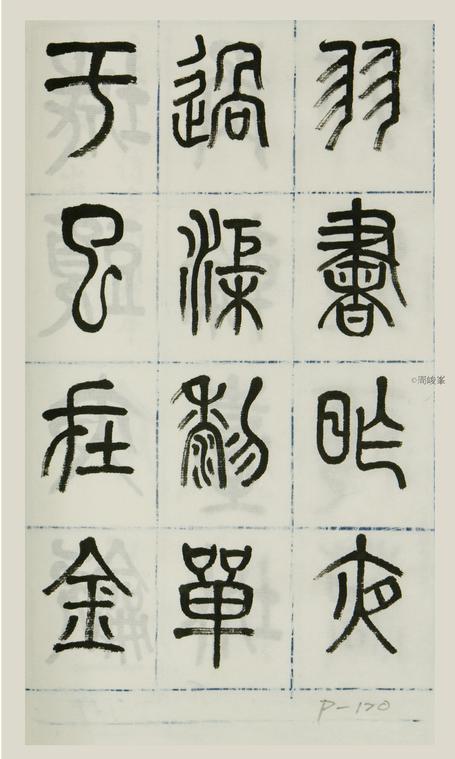 羽書昨夜
過渠黎單
于已在金
©周峻峯
P-170